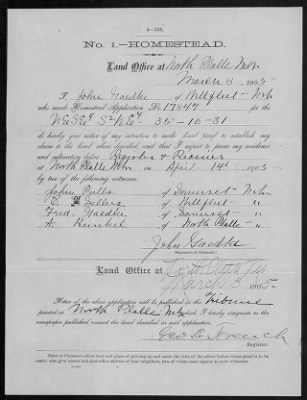 4-348.
No. 1.—HOMESTEAD.
Land Office at North Platte Neb
March 3, 1905
I, John Gaedke of Wellfleet - Neb
who made Homestead Application No. 17847 for the
35-10-31
do hereby give notice of my intention to make final proof to establish my
claim to the land above described, and that I expect to prove my residence
and cultivation before Register & Receiver
at North Platte Neb on April 14th 1905
by two of the following witnesses:
John of Somerset - Neb
of Wellfleet - "
Fred Gaedke of Somerset - "
A. Kunkel of North Platte - "
John Gaedke
(Signature of Claimant.)
Land Office at North Platte Neb
March 3, 1905
Notice of the above application will be published in the Tribune
printed at North Platte Neb which I hereby designate as the
newspaper published nearest the land described in said application.
Geo. E. French
Register.
Notice to Claimant.—Give time and place of proving up and name the title of the officer before whom proof is to be
made; also give names and post-office address of four neighbors, two of whom must appear as your witnesses.